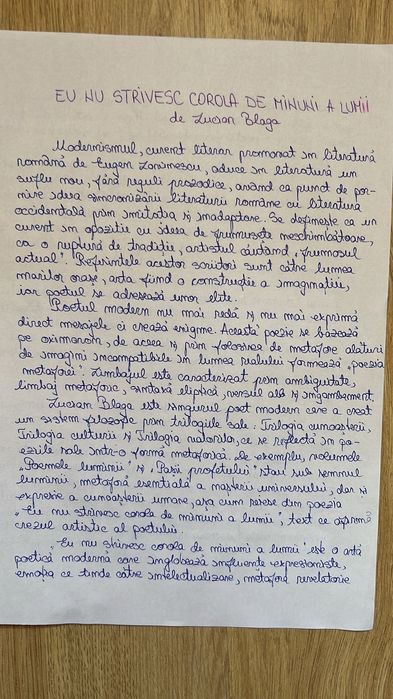 EU NU STRIVESC COROLA DE MINUNI A LUMII
de Lucian Blaga
Modernismul, curent literar promovat în literatură
română de Eugen Lovinescu, aduce în literatură un
suflu nou, fără reguli prozodice, având ca punct de por-
nire ideea sincronizării literaturii române cu literatura
occidentală prin imitație și inadaptare. Se definește ca un
curent în opoziție cu ideea de frumusețe neschimbătoare,
ca o ruptură de tradiție, artistul căutând „frumosul
actual". Referințele acestor scriitori sunt către lumea
marilor orașe, arta fiind o construcție a imaginației,
iar poetul se adresează unor elite.
Poetul modern nu mai redă și nu mai exprimă
direct mesajele ci crează enigme. Această poezie se bazează
pe oximoron, de aceea și prin folosirea de metafore alături
de imagini incompatibile în lumea realului formează „poezia
metaforei". Limbajul este caracterizat prin ambiguitate,
limbaj metaforic, sintaxă eliptică, versul alb și ingambament.
Lucian Blaga este singurul poet modern care a creat
un sistem filozofic prin trilogiile sale: Trilogia cunoașterii,
Trilogia culturii și Trilogia valorilor, ce se reflectă în po-
eziile sale într-o formă metaforică. De exemplu, volumele
„Poemele luminii" și „Pașii profetului" stau sub semnul
luminii, metaforă esențială a nașterii universului, dar și
expresie a cunoașterii umane, așa cum reiese din poezia
„Eu nu strivesc corola de minuni a lumii", text ce exprimă
crezul artistic al poetului.
„Eu nu strivesc corola de minuni a lumii" este o artă
poetică modernă care înglobează influențe expresioniste,
emoția ce tinde către intelectualizare, metafora revelatorie